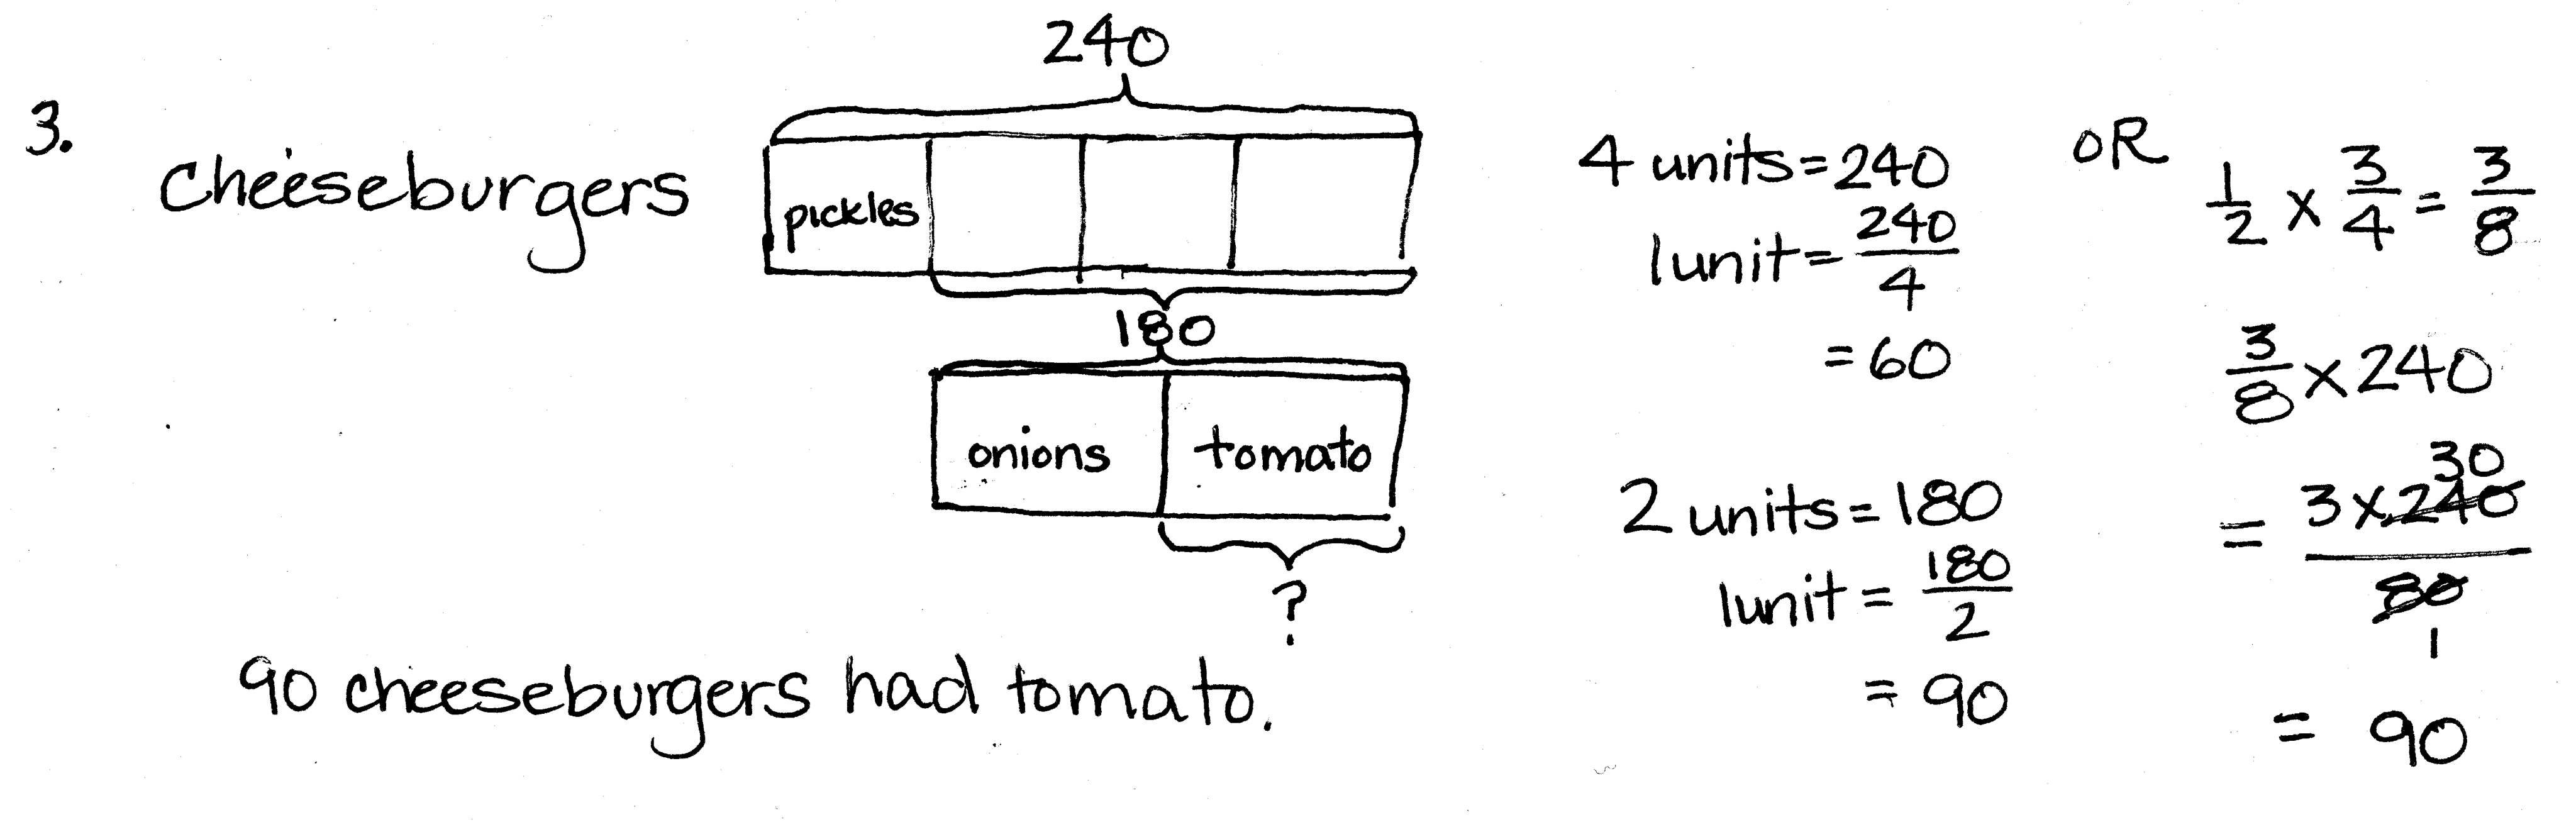 3.
Cheeseburgers
240
pickles
180
onions tomato
?
90 cheeseburgers had tomato.
4 units = 240
1 unit = 240/4
= 60
2 units = 180
1 unit = 180/2
= 90
OR
1/2 x 3/4 = 3/8
3/8 x 240
30
= 3 x 240 / 80
1
= 90